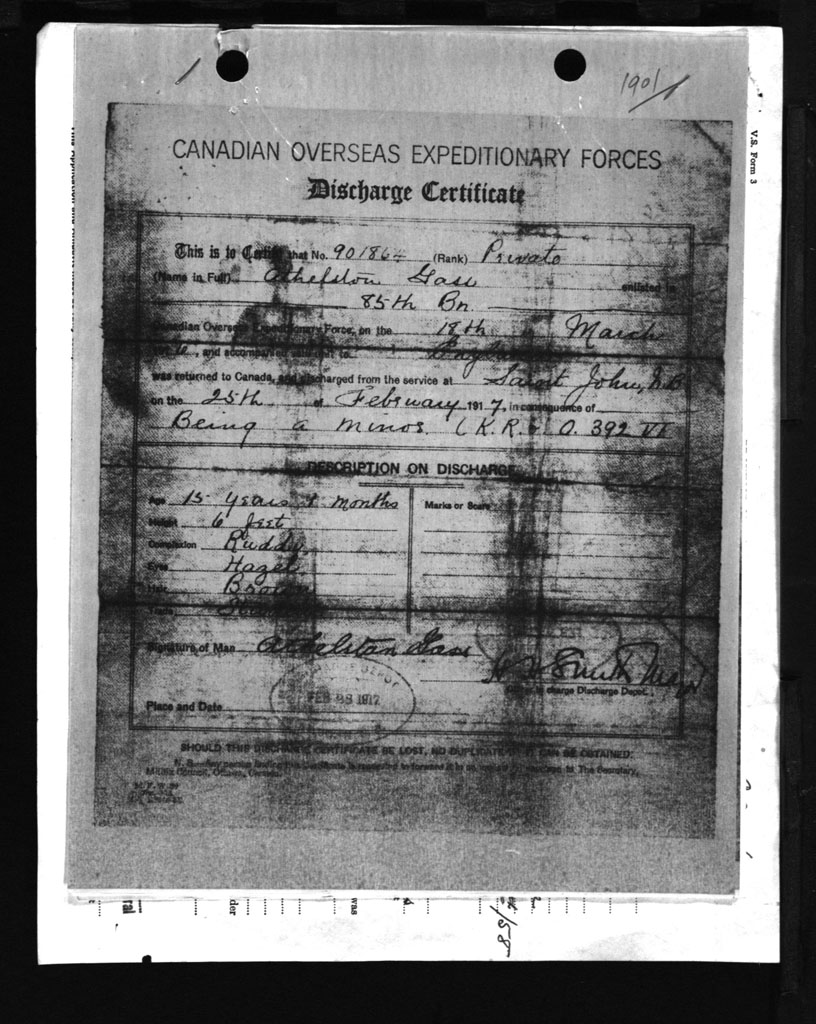 1901/1
V.S. Form 3
CANADIAN OVERSEAS EXPEDITIONARY FORCES
Discharge Certificate
This is to Certify that No. 901864 (Rank) Private
(Name in Full) Athelston Gass enlisted in
85th Bn.
Canadian Overseas Expeditionary Force, on the 18th March
and accompanied to
was returned to Canada, and discharged from the service at Saint John, N.B
on the 25th of February 1917, in consequence of
Being a minor (K.R. O. 392 VI
DESCRIPTION ON DISCHARGE
Age 15 years months
Marks or Scars
Height 6 feet
Complexion Ruddy
Eyes Hazel
Hair Brown
Signature of Man Athelstan Gass
Smith
charge Discharge Depot.
FEB 1917
Place and Date
SHOULD THIS DISCHARGE CERTIFICATE BE LOST, NO DUPLICATE OF IT CAN BE OBTAINED.
N. B.—Any person finding this Certificate is requested to forward it to The Secretary,
Militia Council, Ottawa, Canada.
was
der
ral
/58